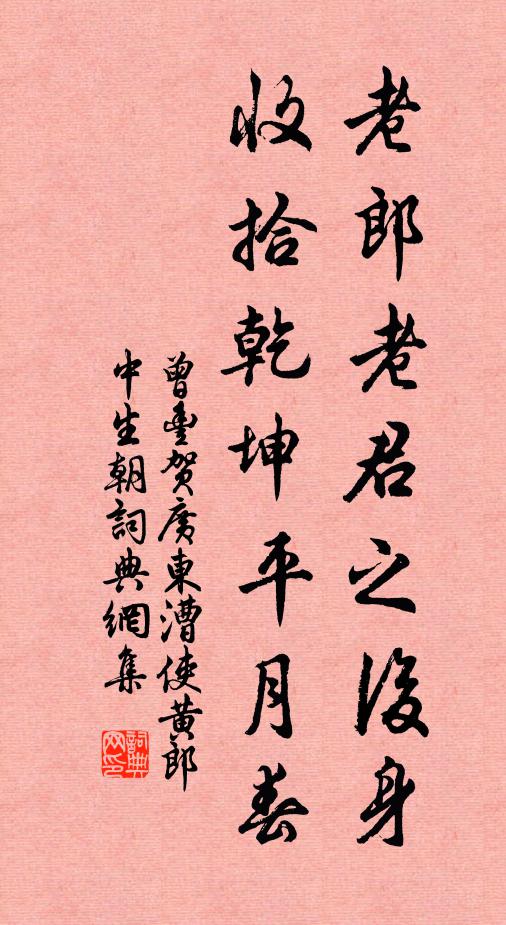 老郎老君之後身
收拾乾坤平月春
曾豊贺廣東漕使黄郎
中生朝詞典網集
詞典网印